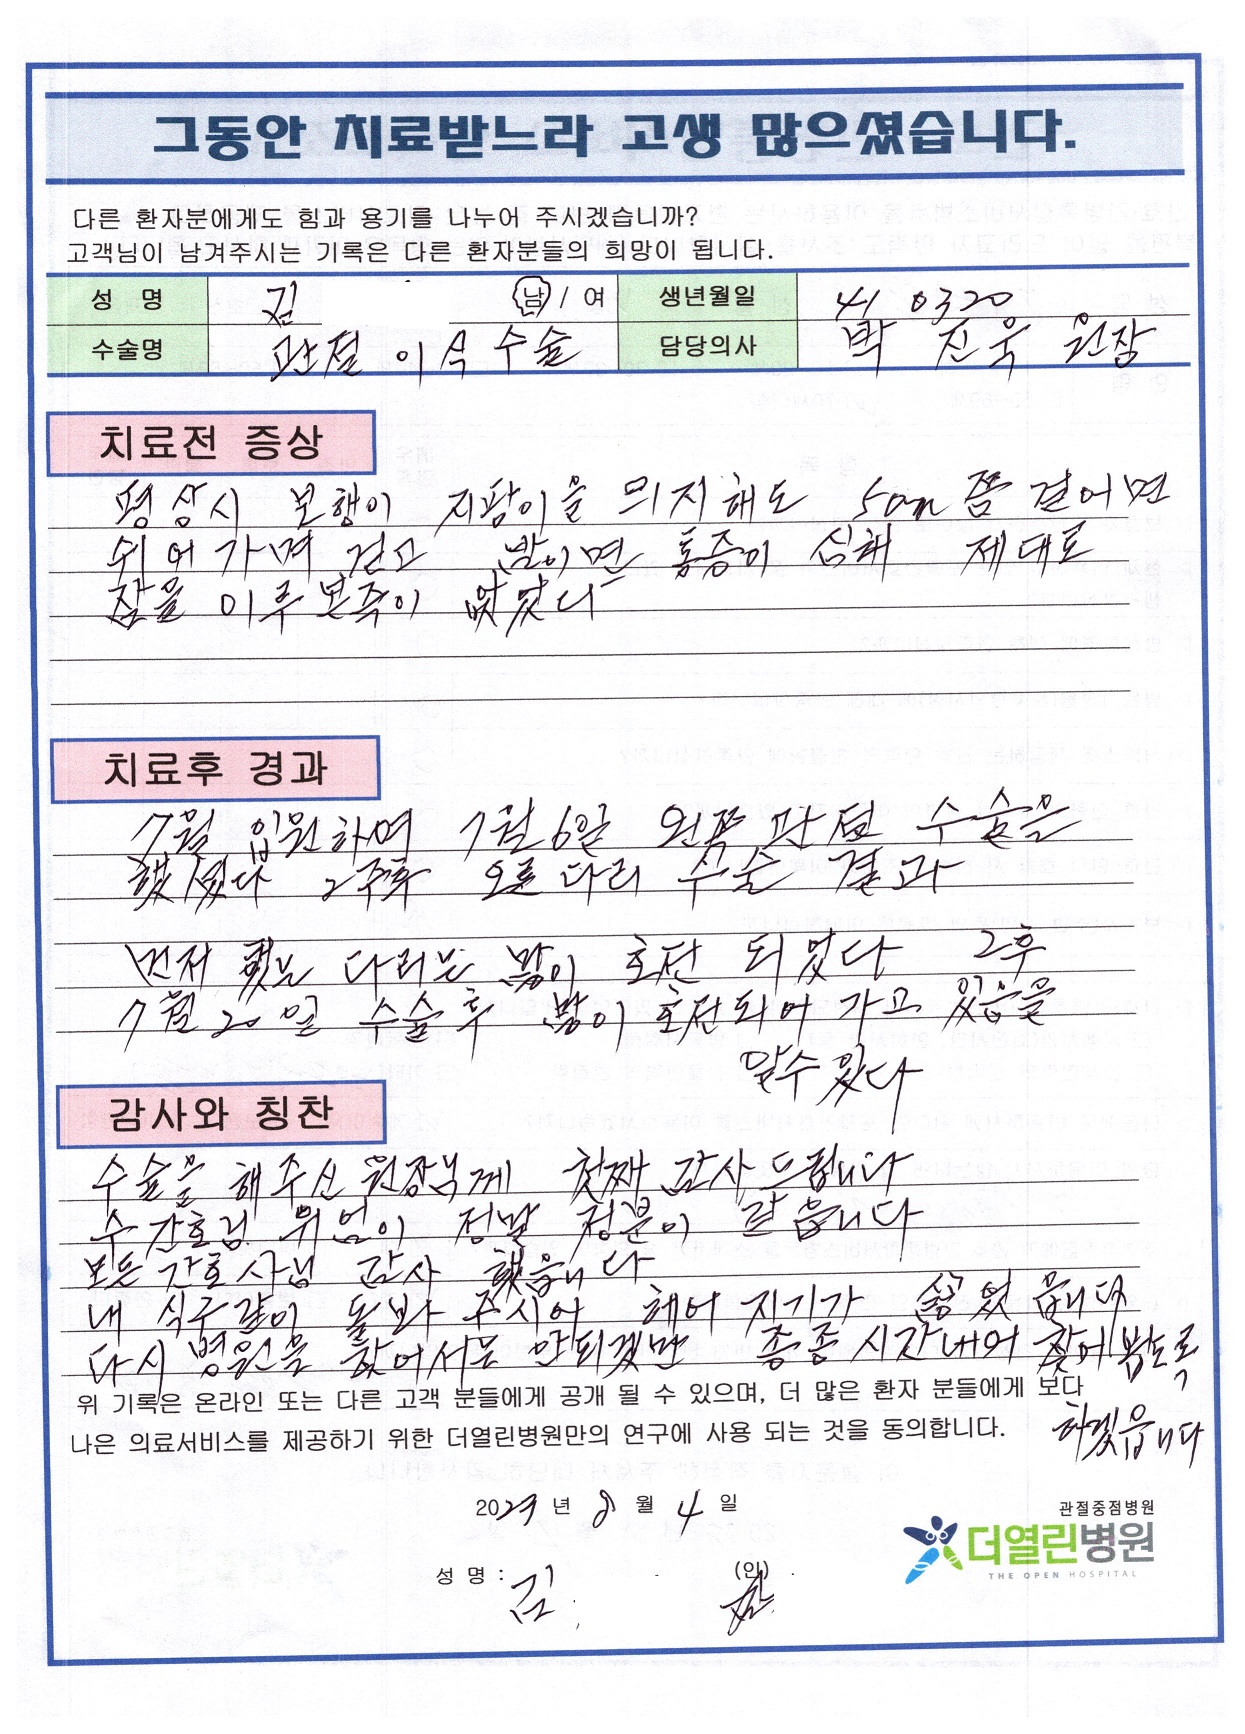 그동안 치료받느라 고생 많으셨습니다.
다른 환자분에게도 힘과 용기를 나누어 주시겠습니까?
고객님이 남겨주시는 기록은 다른 환자분들의 희망이 됩니다.
성 명 김 남 / 여 생년월일 410320
수술명 관절 이식 수술 담당의사 박 진욱 원장
치료전 증상
평상시 보행이 지팡이을 의지해도 50m쯤 걸어면
쉬어가며 걷고 밤이면 통증이 심해 제대로
잠을 이루본죽이 없었다
치료후 경과
7월 입원하며 7월 6일 왼쪽 관절 수술을
했셨다 2주후 오른다리 수술 결과
먼저 했는 다리는 많이 호전 되었다 2후
7월 20일 수술후 많이 호전되어 가고 있음을
알수 있다
감사와 칭찬
수술을 해주신 원장님께 첫째 감사드립니다
수간호님 위엄이 정말 정분이 갈읍니다
모든 간호사님 감사 했읍니다
내 식구같이 돌봐 주시어 헤어지기가 싫었읍니다
다시 병원을 찾어서는 안되겠만 종종 시간내어 찾어뵙도록
하겠읍니다
위 기록은 온라인 또는 다른 고객 분들에게 공개 될 수 있으며, 더 많은 환자 분들에게 보다
나은 의료서비스를 제공하기 위한 더열린병원만의 연구에 사용 되는 것을 동의합니다.
2023 년 8 월 4 일
성 명 : 김 (인)
관절중점병원
더열린병원
THE OPEN HOSPITAL